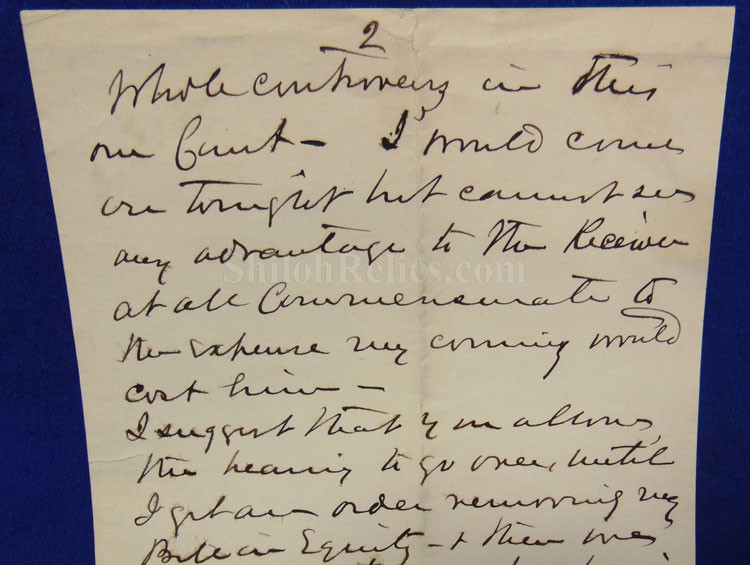 2
Whole controversy in this
one Court - I would come
on tonight but cannot see
any advantage to the Receiver
ShilohRelics.com
at all Commensurate to
the expense my coming would
cost him -
I suggest that you allow
the hearing to go over, until
I get an order removing my
Bill in Equity - & then